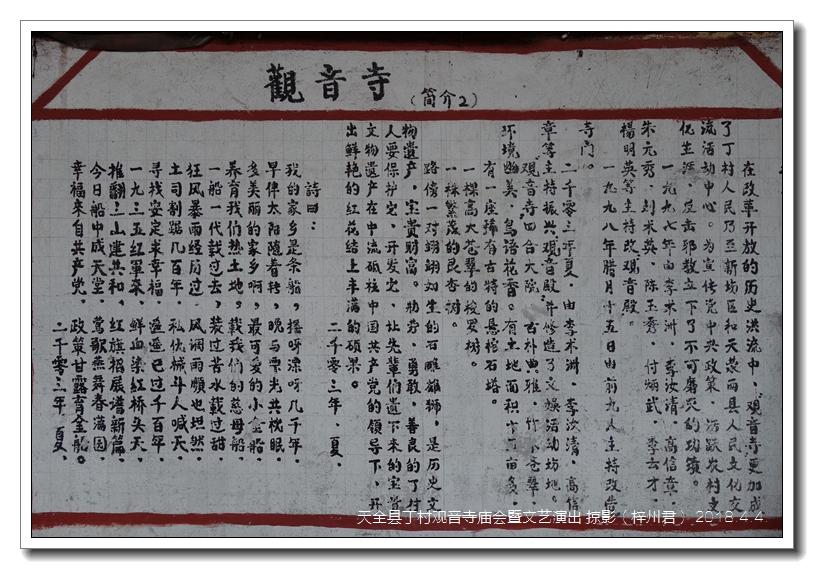 觀音寺（简介2）
在改革开放的历史洪流中，观音寺更加成
了丁村人民乃至新场区和天荥两县人民文化交
流活动中心。为宣传党中共政策、活跃农村文
化生活，反击邪教立下了不可磨灭的功绩。
一九九七年由李术洲、李汝清、高信章、
朱元秀、刘术英、陈玉秀、付炳武、李云才、
杨明英等主持改观音殿。
一九九八年腊月十五日由前九人主持改告
寺门。
二千零三年夏，由李术洲、李汝清、高信
章等主持振兴观音殿，并修造了文娱活动坊地。
观音寺四合大院，古朴典雅，竹下苍翠，
环境幽美，鸟语花香。有土地面积十一亩多，
有一座稀有古特的悬棺石塔。
一棵高大苍翠的梭罗树。
一株繁茂的良杏树。
路傍一对翊翊如生的石雕雄狮，是历史文
物遗产，宝贵财富。勤劳、勇敢、善良的丁村
人要保护它，开发它，让先輩伯遗下来的宝贵
文物遗产在中流砥柱中国共产党的领导下，开
出鲜艳的红花结上丰满的硕果。
二千零三年、夏、
詩曰：
我的家乡是条船，摇呀漂呀几千年，
早伴太阳随着转，晚与栗光共枕眠，
多美丽的家乡啊，最可爱的小金船，
养育我们热土地，载我们的慈母船，
船一代载过去，装过苦水载过甜，
狂风暴雨经历过，风调雨顺也坦然，
土司割踞几百年，私伙械斗人喊天，
寻找安定求幸福，遥遥已过千百年，
一九三五红軍来，鲜血染红桥头天，
推翻三山建共和，红旗招展谱新篇，
今日船中成天堂，莺歌燕舞春满园，
幸福来自共产党、政策甘露育金船。
二千零三年、夏、
天全县丁村观音寺庙会暨文艺演出 掠影（梓州君） 2018.4.4